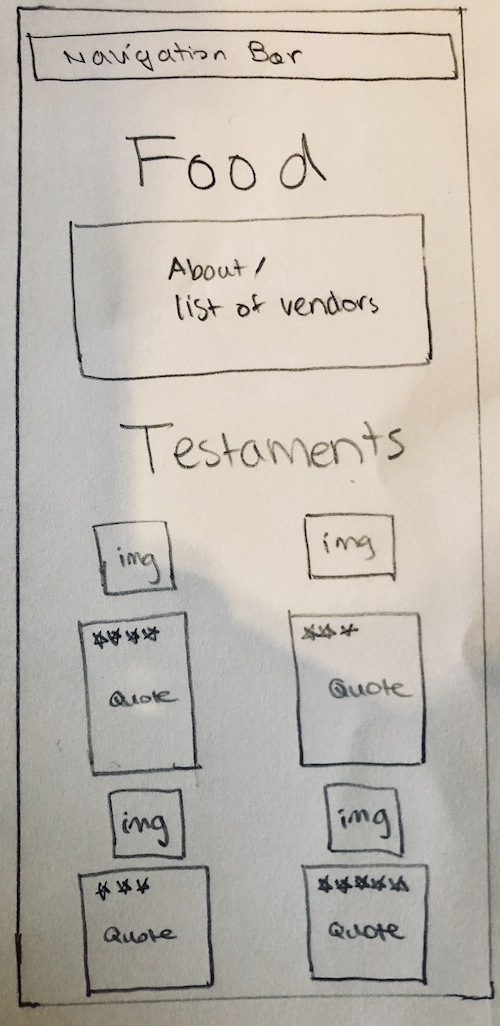 Navigation Bar
Food
About/
list of vendors
Testaments
img
img
Quote
Quote
img
img
Quote
Quote